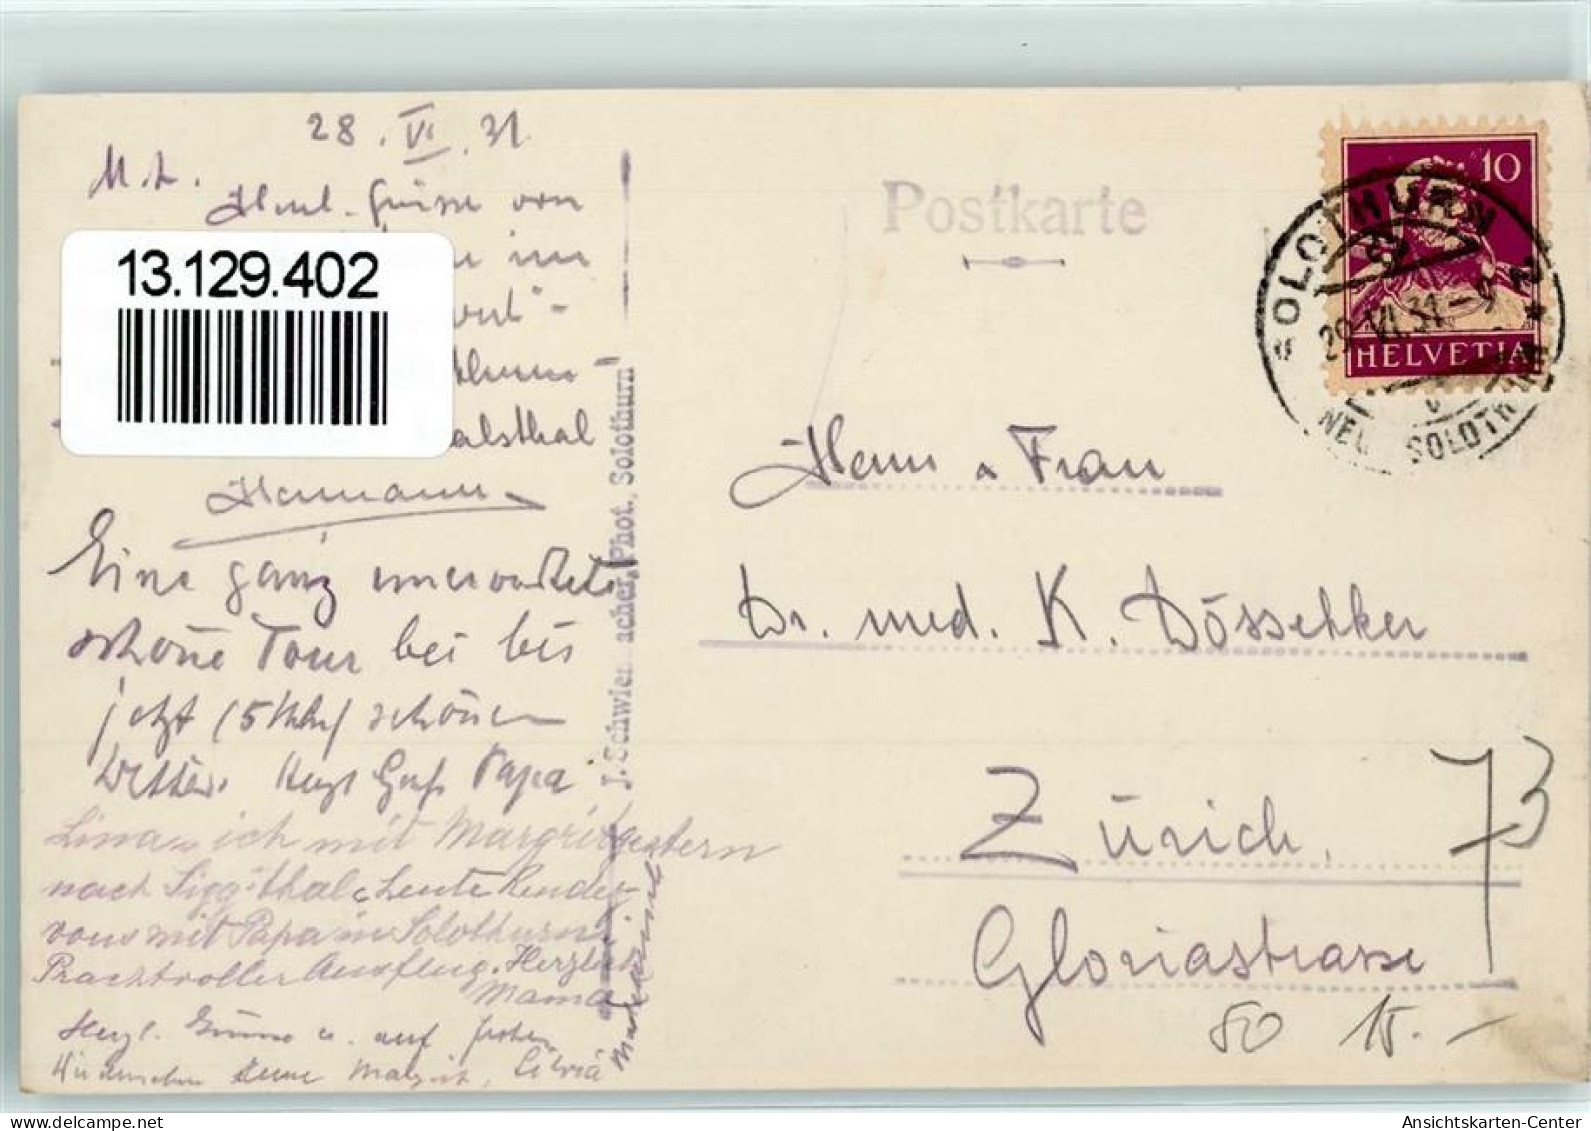 28. VI. 31.
M. L.
Herzl. Grüsse von
im
13.129.402
alsthal
Hermann
Eine ganz unerwartete
schöne Tour bei bis
jetzt (5 Uhr) schönem
Wetter. Herzl Gruß Papa
Lina u ich mit Margrit gestern
nach Siggithal, heute Rendez-
vous mit Papa in Solothurn.
Prachtvoller Ausflug. Herzlich
Mama
Herzl. Grüsse u. auf frohes
Wiedersehen Eure Margrit, Silvia
J. Schwie acher, Phot., Solothurn
Postkarte
10
HELVETIA
SOLOTHURN 2
29. VI. 31. - 9
SOLOTH
Herrn u Frau
Dr. med. K. Dössekker
Zürich.
73
Gloriastrasse
80 15.-
Ansichtskarten-Center